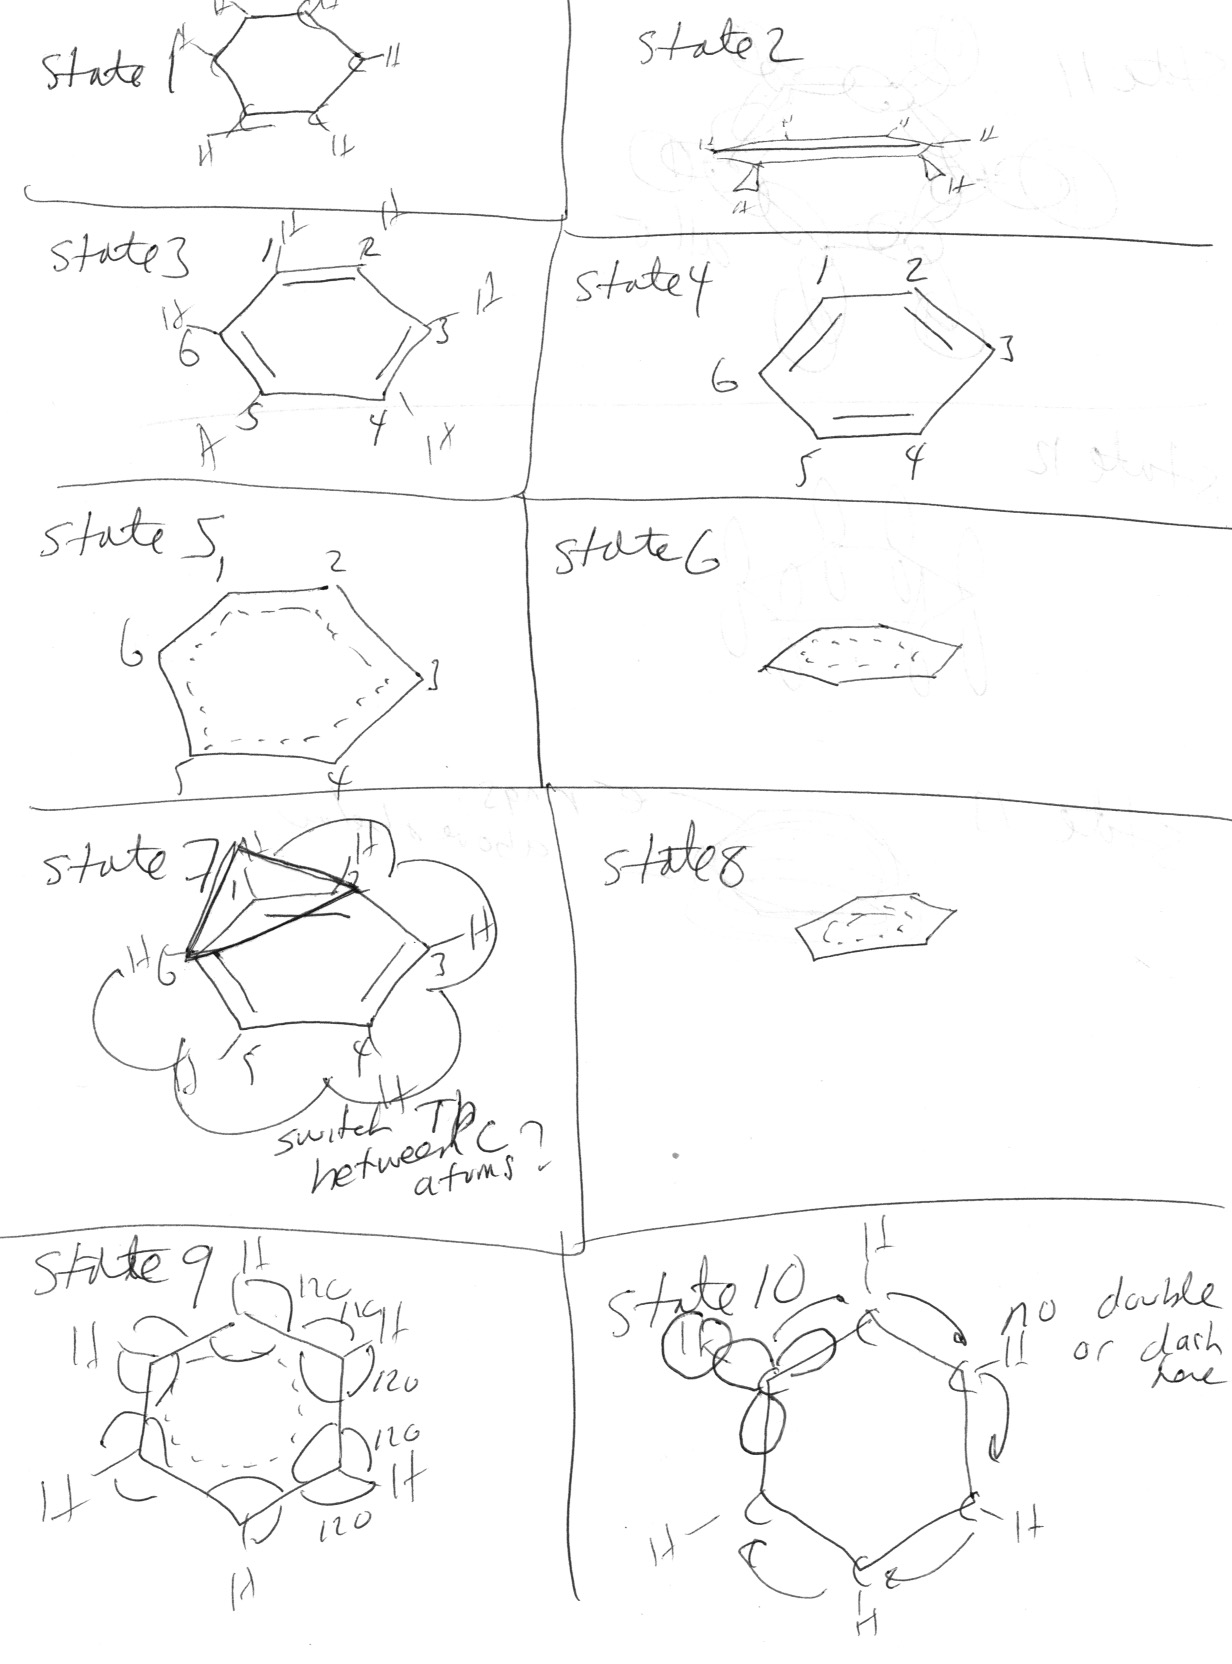 state 1
H
H
H
state 2
H
H
H
H
H
H
state 3
H
H
1
2
H
H
3
6
5
4
H
H
state 4
1
2
3
6
5
4
state 5
1
2
6
3
5
4
state 6
state 7
H
H
1
2
H
H
6
3
5
4
H
switch TP
between C
atoms?
state 8
state 9
H
120
120
H
H
120
120
H
H
120
H
state 10
H
C
no double
or dash
here
H
C
C
H
C
C
H
H
C
H